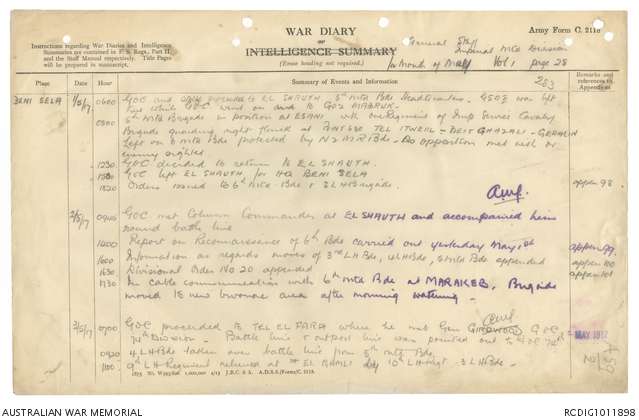 WAR DIARY
or
INTELLIGENCE SUMMARY
(Erase heading not required.)
Army Form C. 2118
Instructions regarding War Diaries and Intelligence
Summaries are contained in F. S. Regs., Part II.
and the Staff Manual respectively. Title Pages
will be prepared in manuscript.
General Staff
Imperial Mtd Division
for Month of May Vol 1 page 28
253
Place Date Hour Summary of Events and Information Remarks and references to Appendices
BENI SELA 1/5/17 0600 GOC and proceeded to EL SHAUTH 5th Mtd Bde Headquarters. GSO3 was left
here while GOC went on to
0800 5th Mtd Brigade in position at ESANI with one Regiment of Imp Service Cavalry
Brigade guarding right flank at TEL ITWEIL - DEIT GHAZALI - GERARIN
Left on Mtd Bde protected by NZMR Bde. No opposition met with or
enemy sighted
1230 GOC decided to return to EL SHAUTH.
1500 GOC left EL SHAUTH for HQ BENI SELA
1820 Orders issued to 6th Mtd Bde & 3 LH Brigade. appen 98
2/5/17 0940 GOC met Column Commander at EL SHAUTH and accompanied him
round battle line
1400 Report on Reconnaissance of 6th Bde carried out yesterday May 1st appen 99
1600 Information as regards moves of 3rd LH Bde, 4LH Bde, 6 Mtd Bde appended appen 100
1630 Divisional Order No 20 appended appen 101
1730 In cable communication with 6th Mtd Bde at MARAKEB. Brigade
moved to new bivouac area after morning watering.
3/5/17 0700 GOC proceeded to TEL EL FARA where he met Gen GIRDWOOD GOC
74th Division - Battle line & outpost line was pointed out to GOC 74th
0920 4 LH Bde taken over battle line from 5th Mtd Bde
1100 9th LH Regiment relieved at EL by 10th LH Regt - 3 LH Bde.
MAY 1917
1875 Wt. 1,000,000 4/15 J.B.C. & A. A.D.S.S./Forms/C. 2118.
AUSTRALIAN WAR MEMORIAL
RCDIG1011898